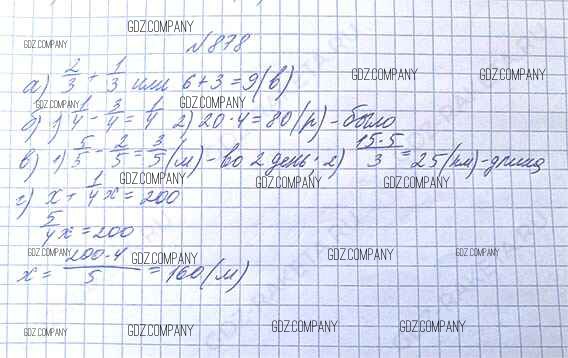 GDZ.COMPANY
GDZ.COMPANY № 878 GDZ.COMPANY
а) 2/3 - 1/3 или 6+3=9(в) GDZ.COMPANY
GDZ.COMPANY GDZ.COMPANY
б) 1) 1/4 - 3/4 = 1/4 2) 20·4=80(р)-было
в) 1) 5/5 - 2/5 = 3/5 (м)-во 2 день; 2) 15·5/3 = 25(км)-длина
GDZ.COMPANY GDZ.COMPANY GDZ.COMPANY
г) x + 1/4 x = 200
5/4 x = 200
GDZ.COMPANY GDZ.COMPANY GDZ.COMPANY GDZ.COMPANY
x = 200·4/5 = 160(м)
GDZ.COMPANY GDZ.COMPANY GDZ.COMPANY GDZ.COMPANY